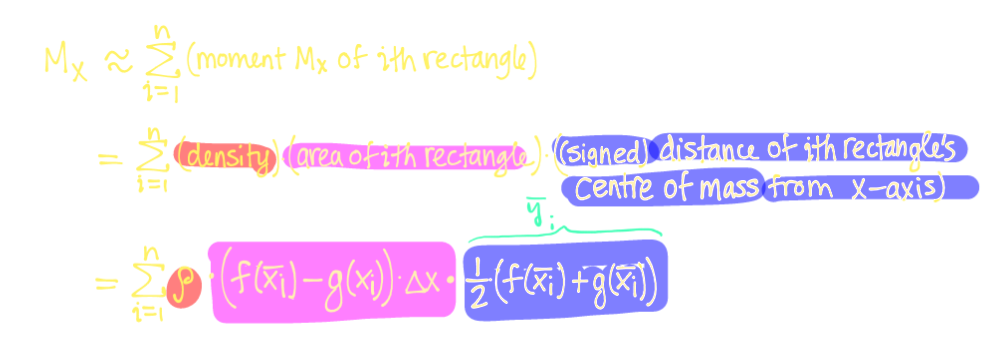 Mx ≈ n Σ i=1 (moment Mx of ith rectangle)
= n Σ i=1 (density) (area of ith rectangle) · ((signed) distance of ith rectangle's
centre of mass from x-axis)
ȳi
= n Σ i=1 ρ · (f(x̄i) − g(xi)) · Δx · 1/2 (f(x̄i) + g(x̄i))